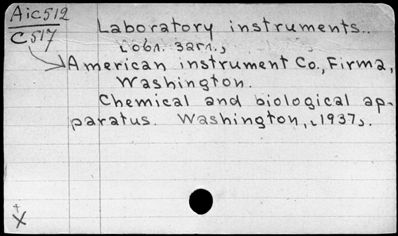 Aic512
C517
Laboratory instruments..
[обл. загл.]
American instrument Co., Firma,
Washington.
Chemical and biological ap-
paratus. Washington, [1937].
+
X